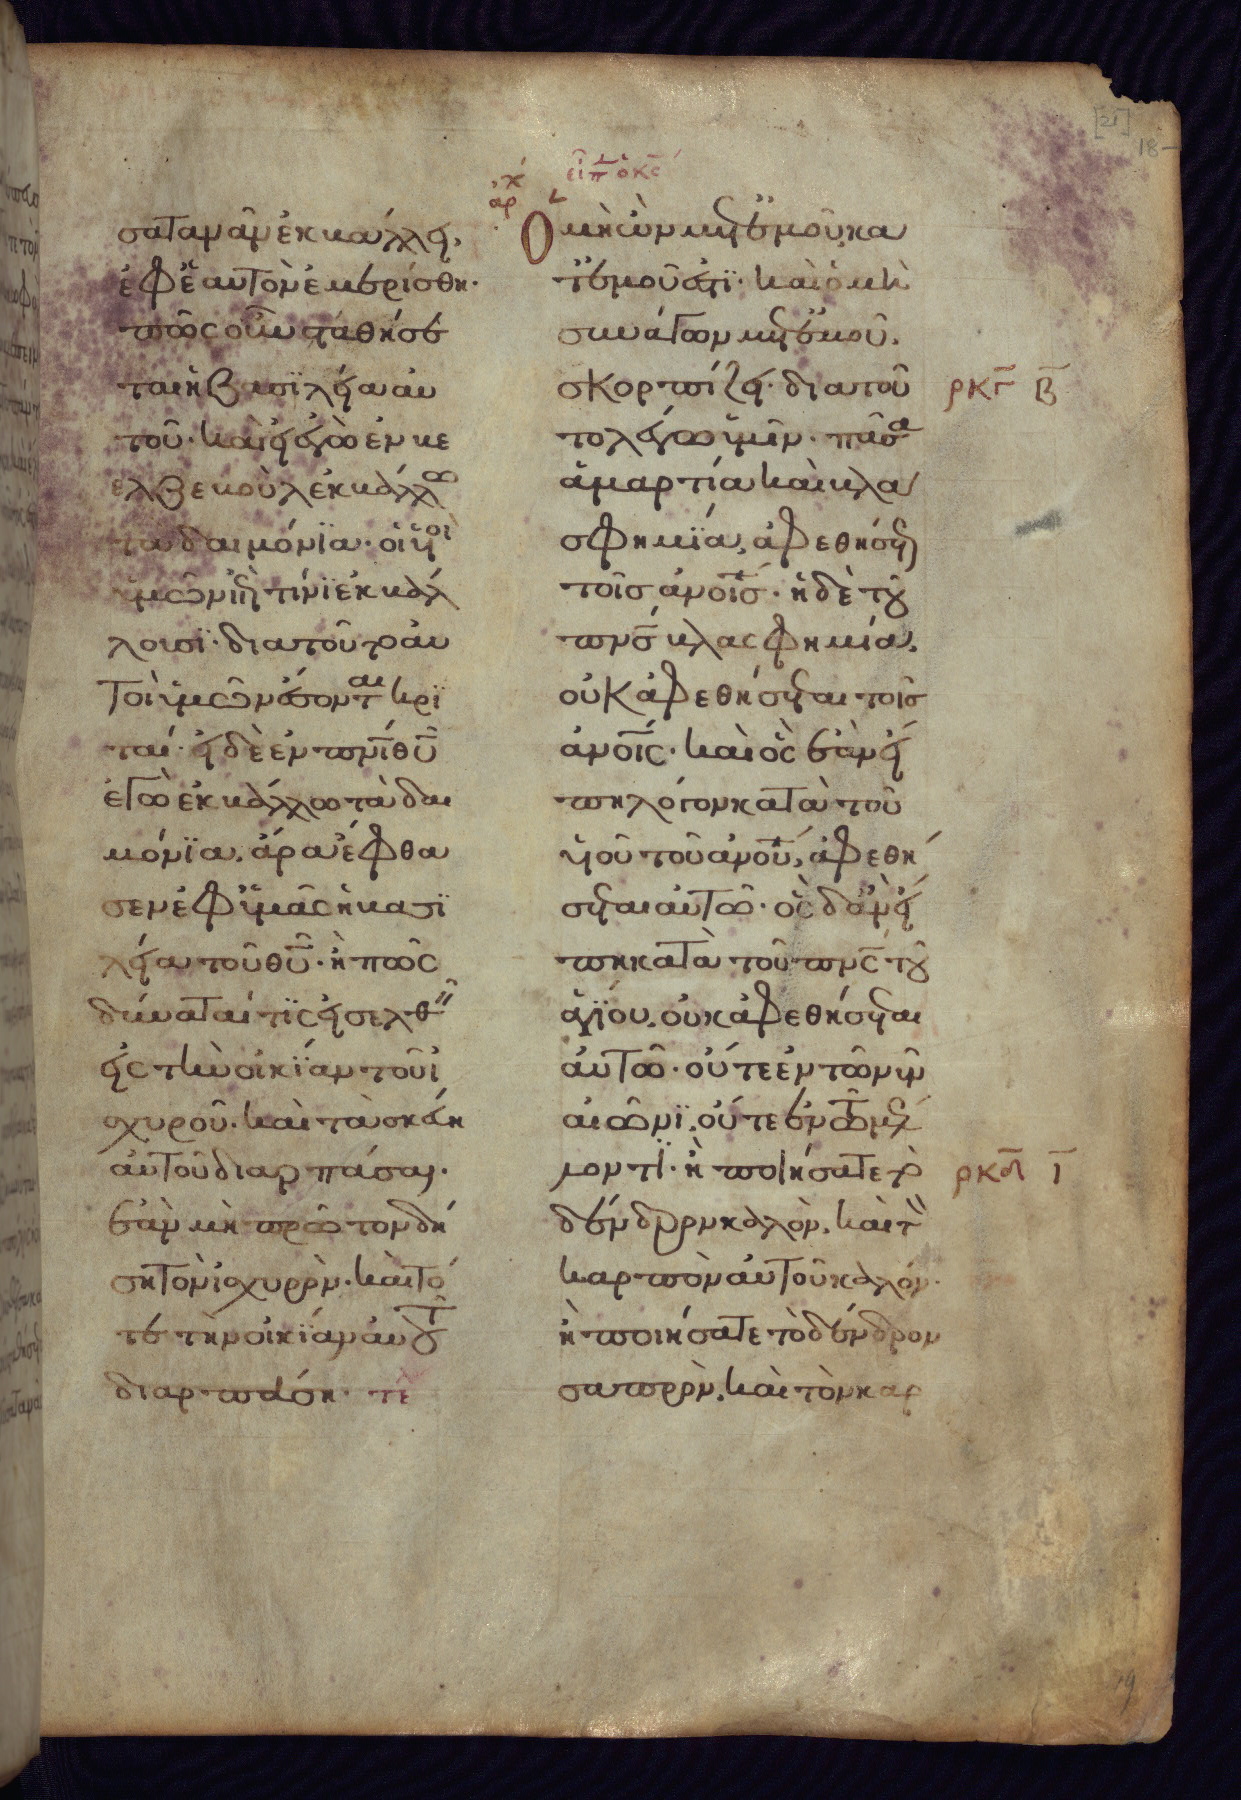 [21]
18
ἀρχ
εἶπ ὁ κς
σατανᾶν ἐκβάλλει,
ἐφ ἑαυτὸν ἐμερίσθη·
πῶς οὖν σταθήσε
ται ἡ βασιλεία αὐ
τοῦ· καὶ εἰ ἐγὼ ἐν βε
ελζεβοὺλ ἐκβάλλω
τὰ δαιμόνϊα· οἱ υἱοὶ
ὑμῶν ἐν τίνϊ ἐκβάλ
λουσϊ· διατοῦτο αὐ
τοὶ ὑμῶν ἔσονται κρϊ
ταί· εἰ δὲ ἐν πνϊ θυ
ἐγὼ ἐκβάλλω τὰ δαι
μόνϊα, ἄρα ἔφθα
σεν ἐφ ὑμᾶς ἡ βασϊ
λεία τοῦ θυ· ἢ πῶς
δύναται τϊς εἰσελθεῖν
εἰς τὴν οἰκϊαν τοῦ ἰ
σχυροῦ· καὶ τὰ σκεύη
αὐτοῦ διαρπάσαι·
ἐὰν μὴ πρῶτον δή
ση τὸν ἰσχυρὸν· καὶ τό
τε τὴν οἰκϊαν αὐτοῦ
διαρπάση· τε
Ὁ μὴ ὢν μετ ἐμοῦ, κα
τ ἐμοῦ ἐστϊ· καὶ ὁ μὴ
συνάγων μετ ἐμοῦ,
σκορπίζει· διατοῦ
το λέγω ὑμῖν· πᾶσα
ἁμαρτία καὶ βλα
σφημϊα, ἀφεθήσεται
τοῖς ἀνοις· ἡ δὲ τοῦ
πνς βλασφημία,
οὐκ ἀφεθήσεται τοῖς
ἀνοις· καὶ ὃς ἐὰν εἴ
πη λόγον κατὰ τοῦ
υἱοῦ τοῦ ἀνου, ἀφεθή
σεται αὐτῶ· ὃς δ ἂν εἴ
πη κατὰ τοῦ πνς τοῦ
ἁγϊου, οὐκ ἀφεθήσεται
αὐτῶ· οὔτε ἐν τῶ νῦν
αἰῶνϊ, οὔτε ἐν τῶ μέλ
λοντϊ· ἢ ποιήσατε τὸ
δένδρον καλὸν, καὶ τὸν
καρπὸν αὐτοῦ καλόν·
ἢ ποιήσατε τὸ δένδρον
σαπρὸν, καὶ τὸν καρ
ρκγ β
ρκδ ι
19